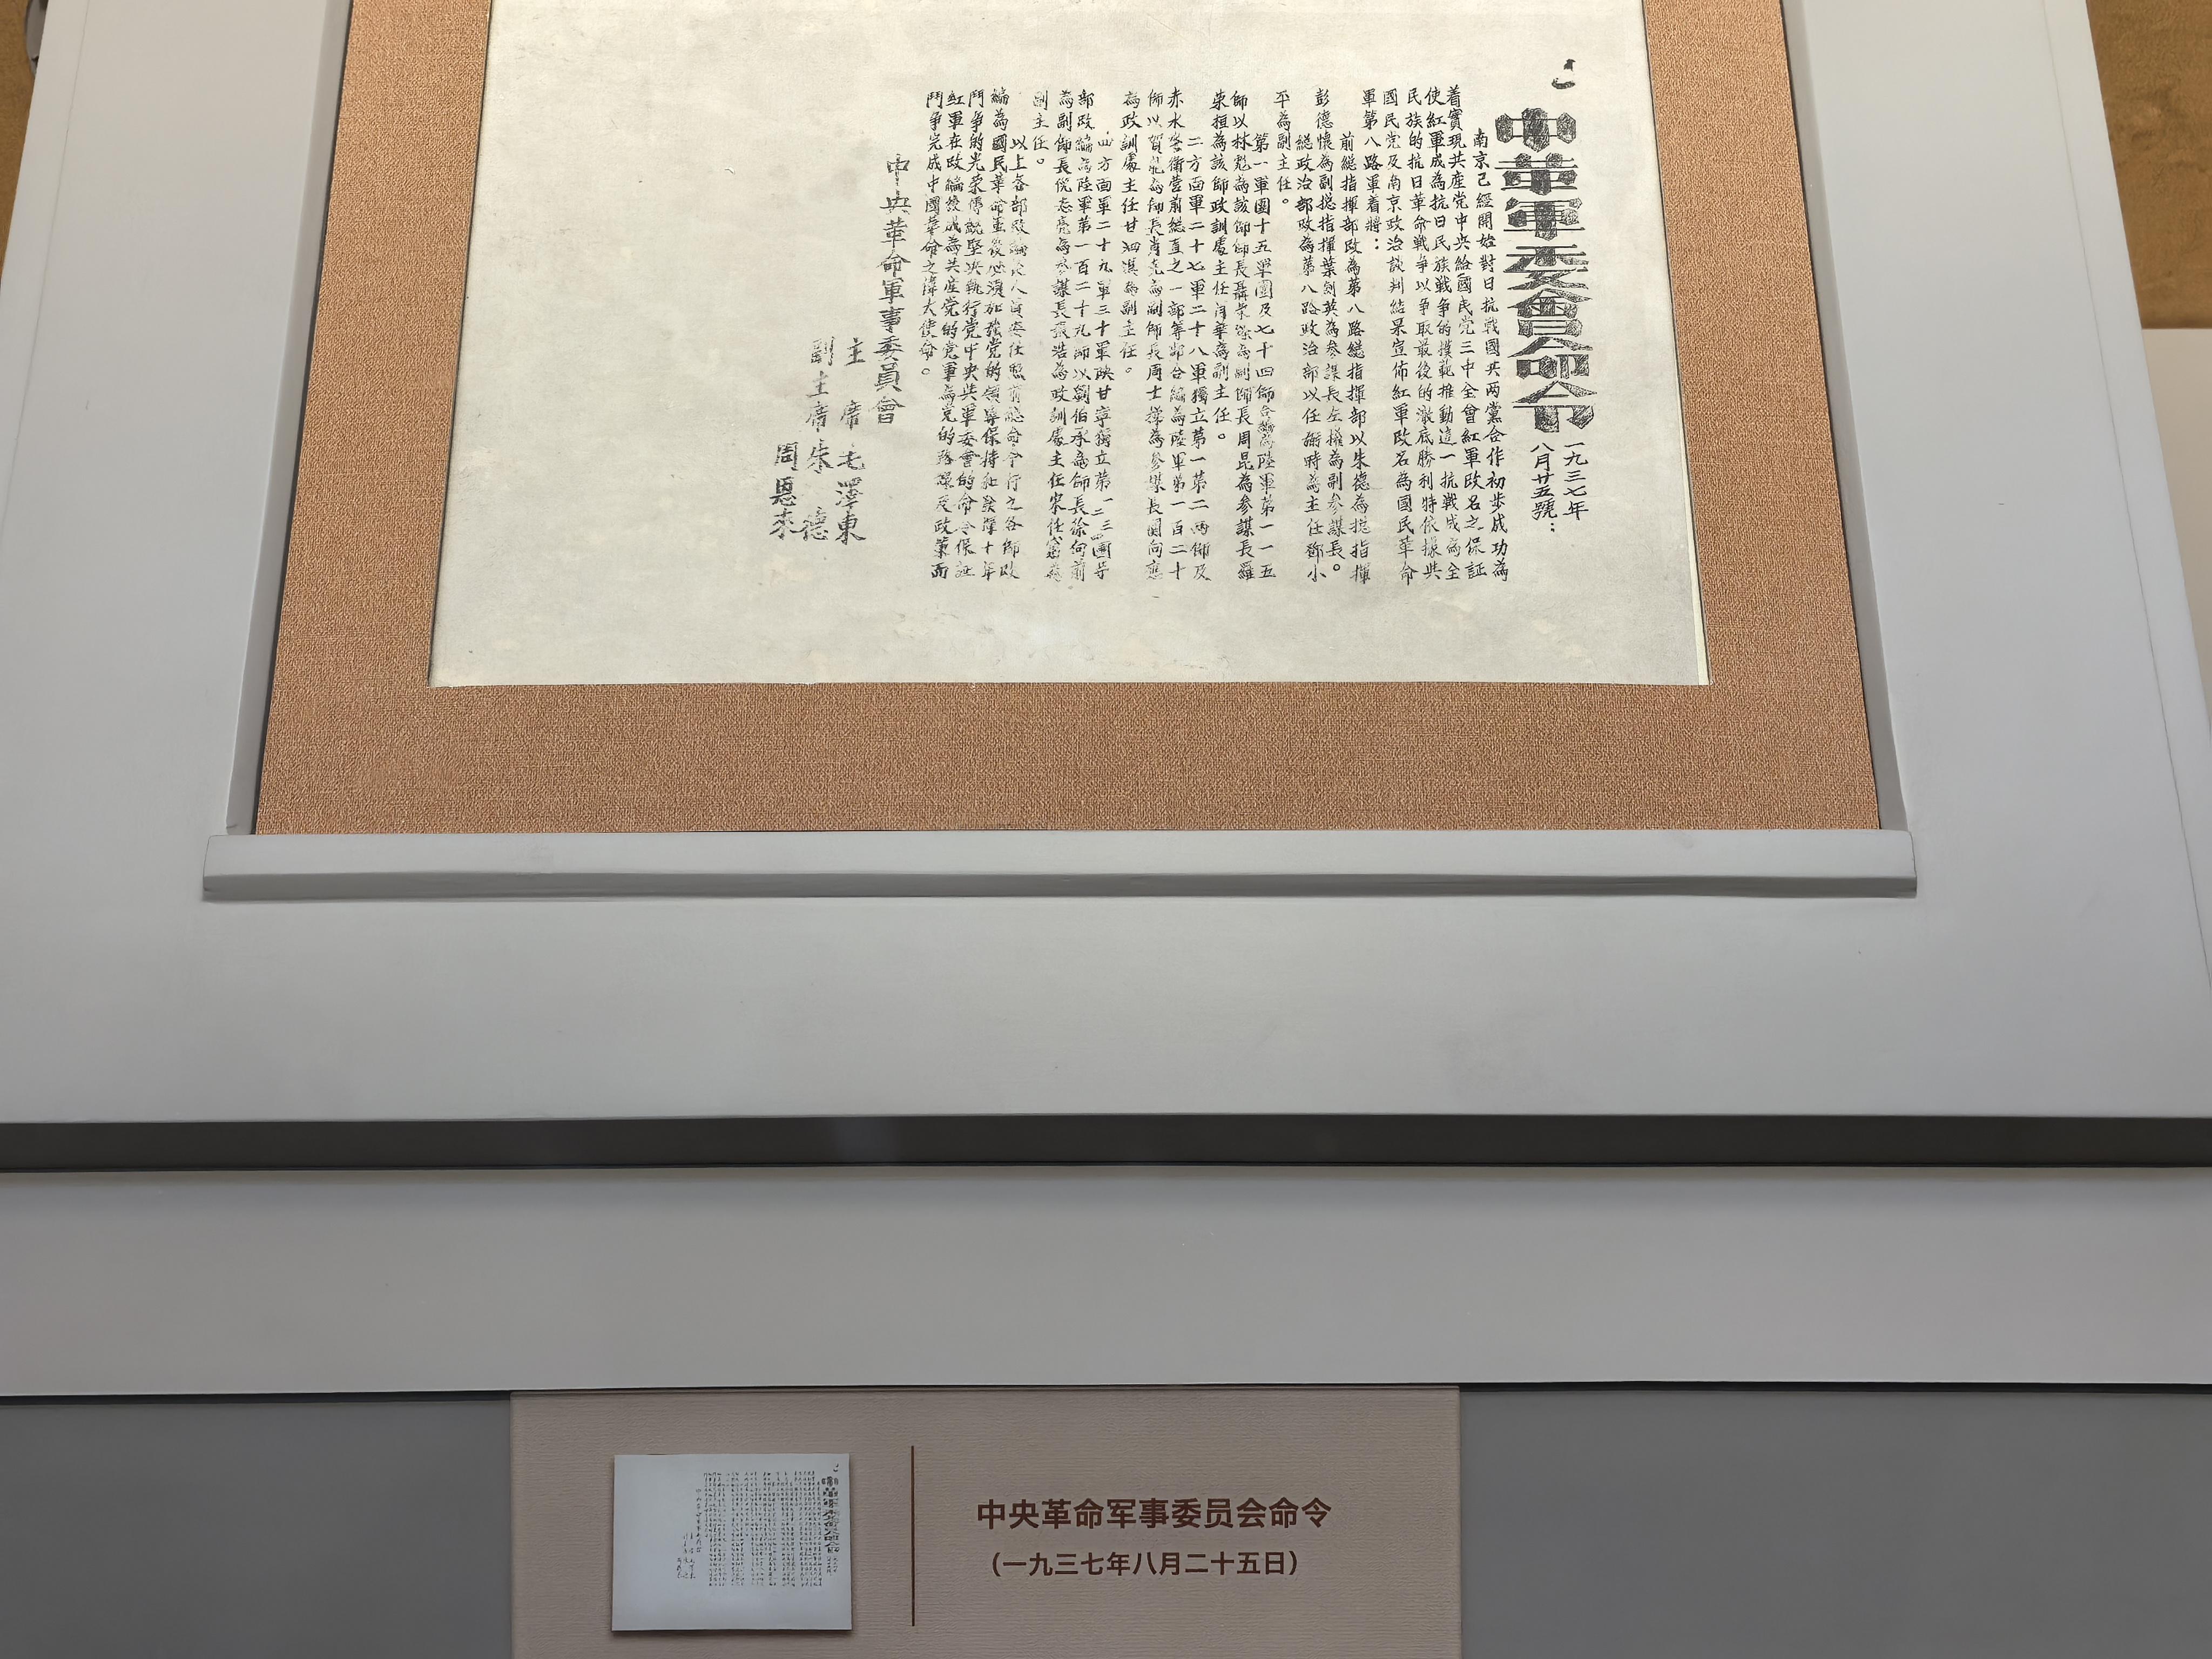 中革軍委會命令
一九三七年
八月廿五號：
南京已經開始對日抗戰國共两黨合作初步成功為
着實現共産党中央給國民党三中全會紅軍改名之保証
使紅軍成為抗日民族戰争的模範推動這一抗戰成為全
民族的抗日革命戰争以争取最後的澈底勝利特依據共
國民党及南京政治談判結果宣佈紅軍改名為國民革命
軍第八路軍着將：
前總指揮部改為第八路總指揮部以朱德為總指揮
彭德懷為副總指揮葉劍英為参謀長左權為副参謀長。
總政治部改為第八路政治部以任弼時為主任鄧小
平為副主任。
第一軍團十五軍團及七十四師合編為陸軍第一一五
師以林彪為該師師長聶荣臻為副師長周昆為参謀長羅
荣桓為該師政訓處主任肖華為副主任。
二方面軍二十七軍二十八軍獨立第一第二两師及
赤水警衛营前總直之一部等部合編為陸軍第一百二十
師以賀龍為師長肖克為副師長周士為参謀長関向應
為政訓處主任甘泗淇為副主任。
四方面軍二十九軍三十軍陜甘寧獨立第一二三四團等
部改編為陸軍第一百二十九師以劉伯承為師長徐向前
為副師長倪志亮為参謀長張浩為政訓處主任宋任窮為
副主任。
以上各部改編後人員委任照前總命令行之各師改
編為國民革命軍後必須加強党的領導保持和發揮十年
鬥争的光荣傳統堅决執行党中央與軍委會的命令保証
紅軍在改編後成為共産党的党軍為党的路線及政策而
鬥争完成中國革命之偉大使命。
中央革命軍事委員會
主席毛澤東
副主席朱德
周恩来
中央革命军事委员会命令
（一九三七年八月二十五日）